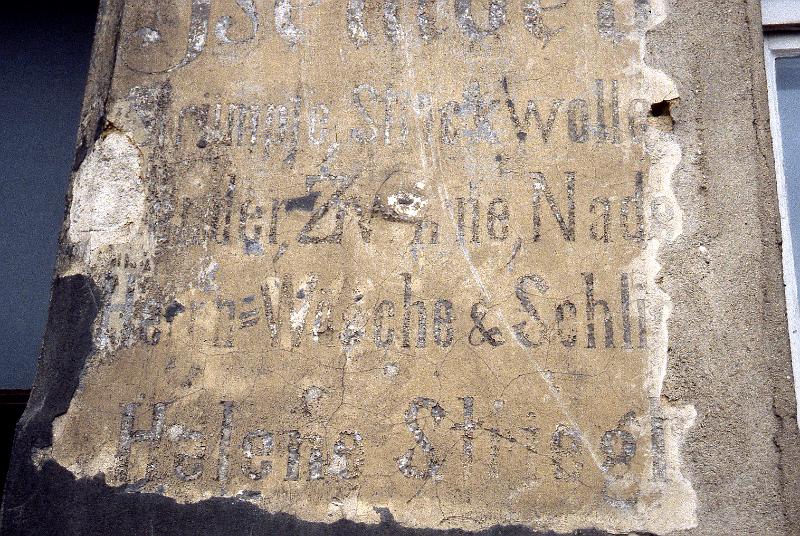 Strümpfe, Strickwolle
Bänder, Zwirne, Nad
Herrn=Wäsche & Schli
Helene Striegl